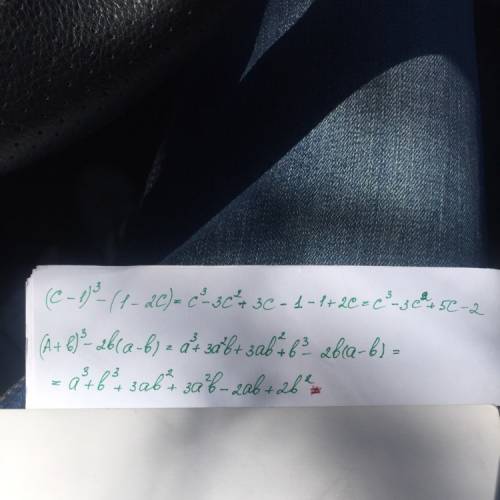 (c-1)³-(1-2c)=c³-3c²+3c-1-1+2c=c³-3c²+5c-2
(A+b)³-2b(a-b)=a³+3a²b+3ab²+b³-2b(a-b)=
=a³+b³+3ab²+3a²b-2ab+2b²